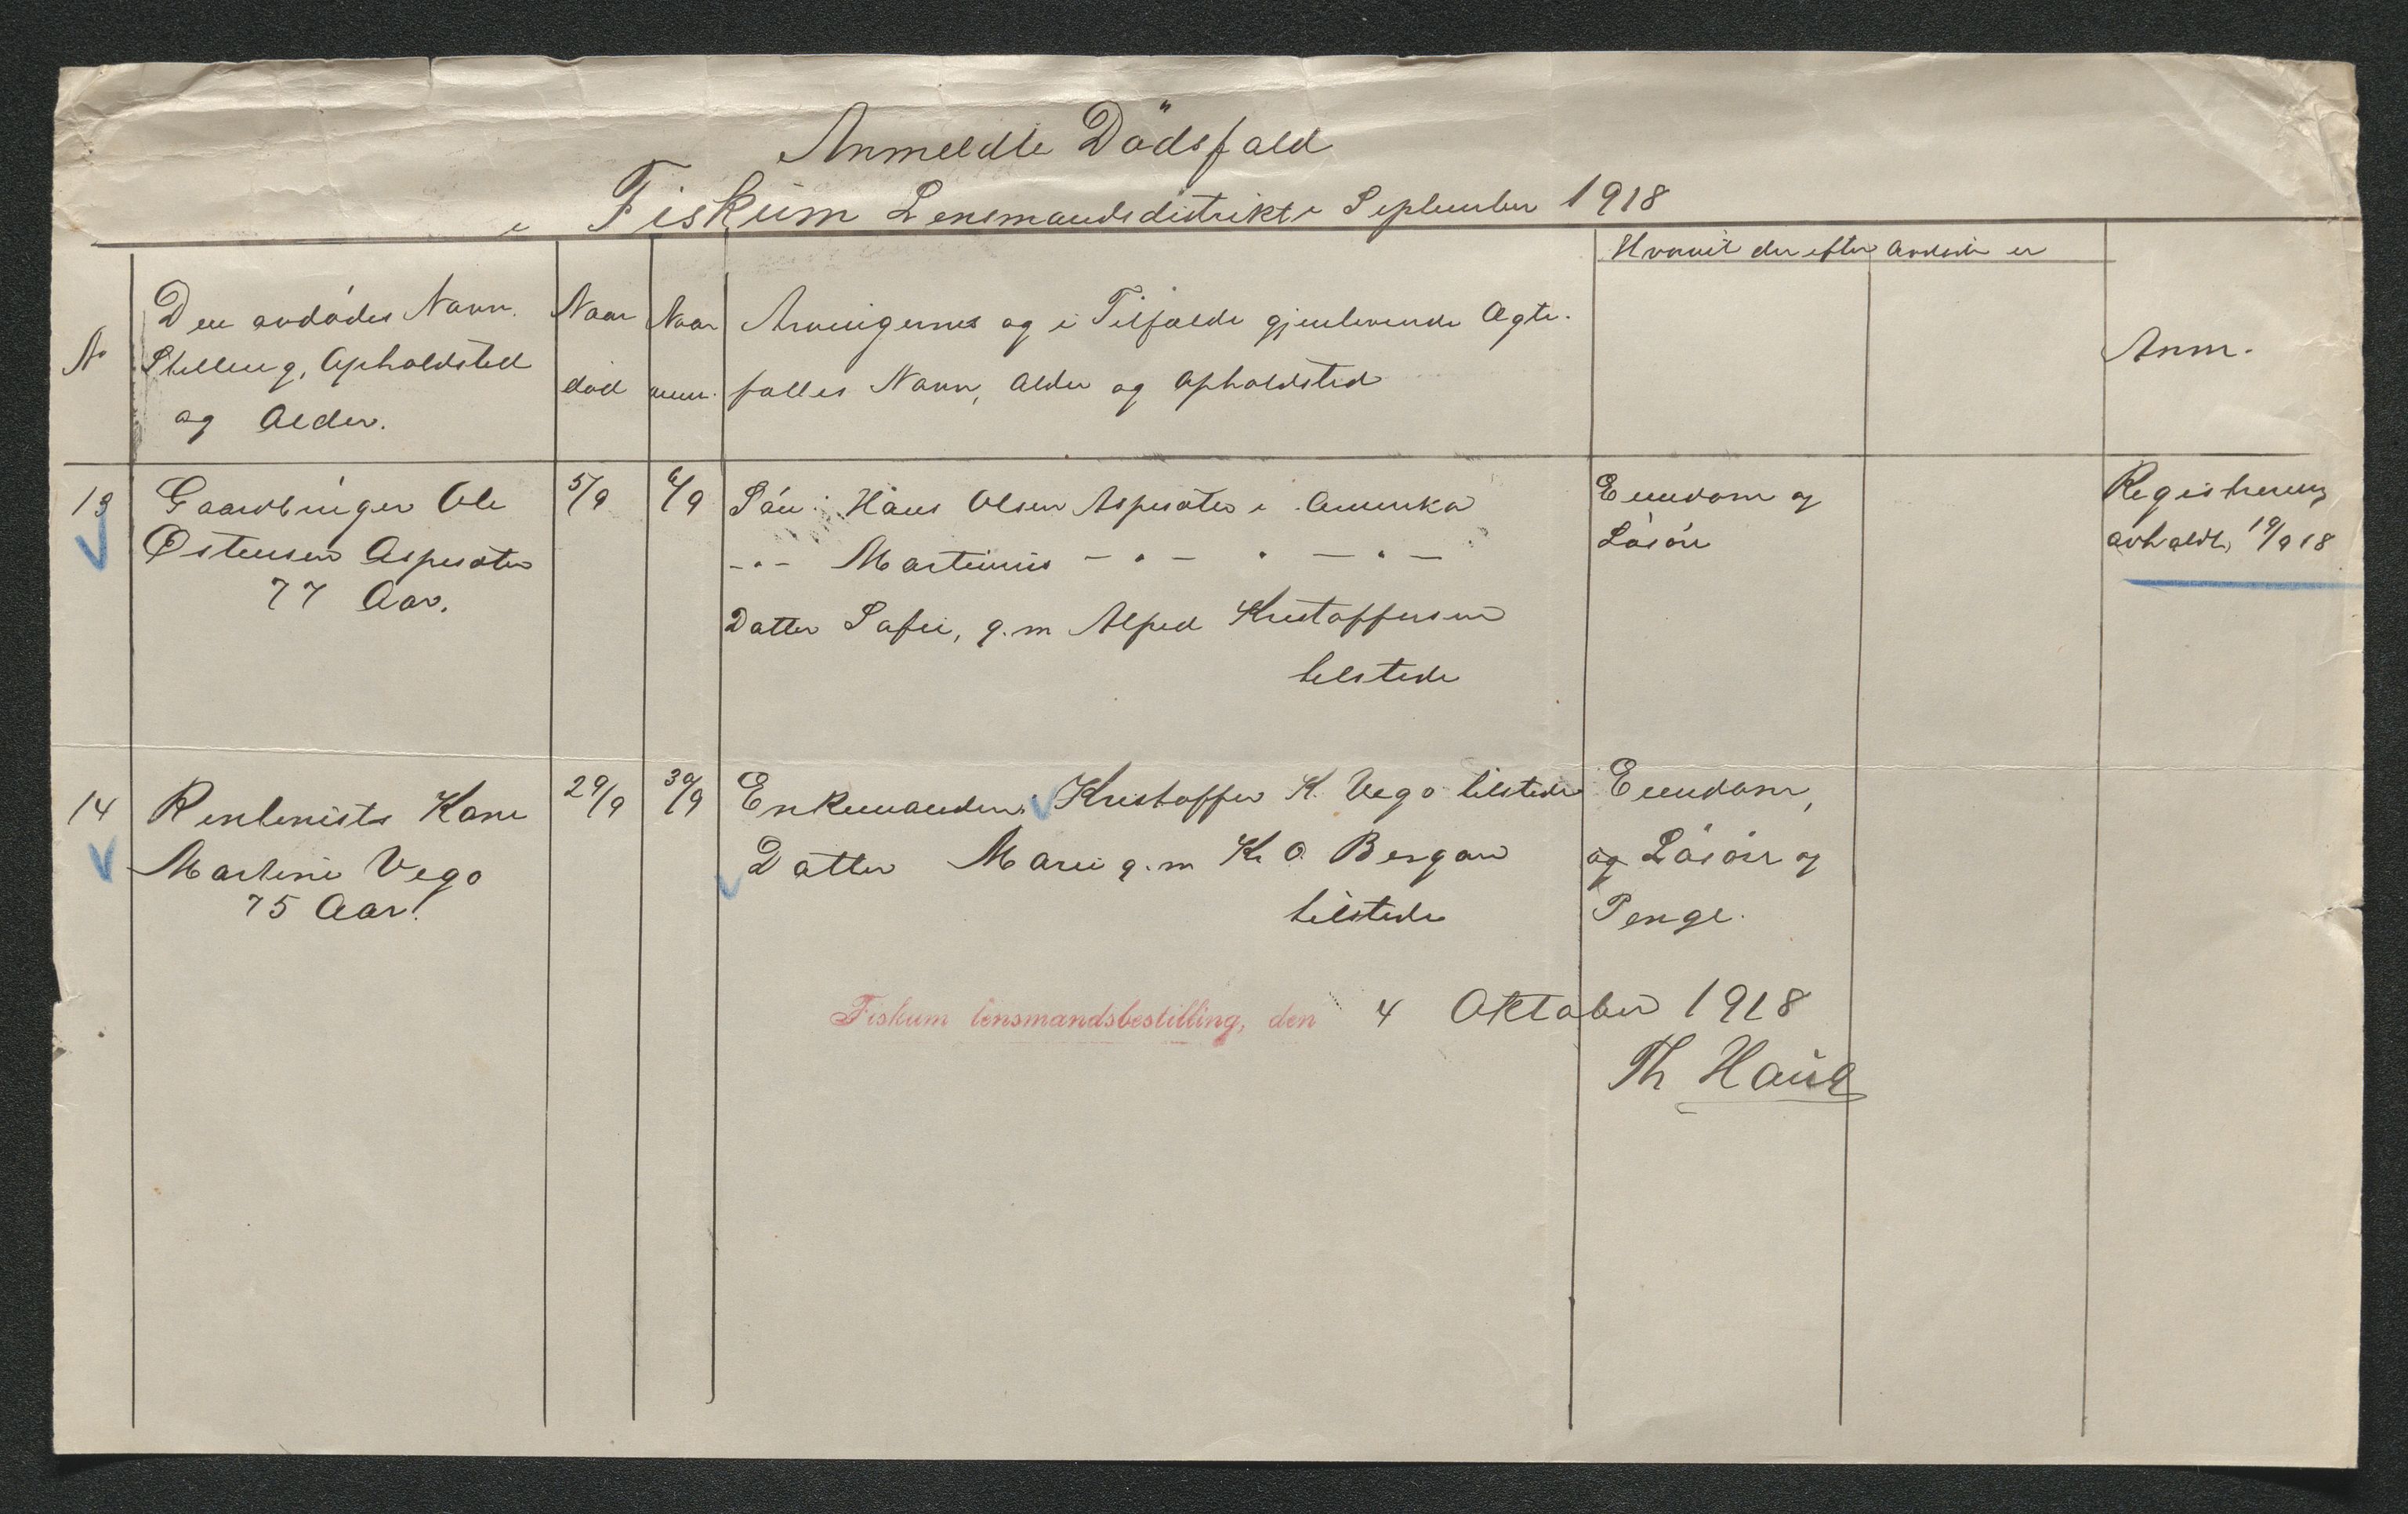 Anmeldte Dödsfald
i Fiskum Lensmandsdistrikt i September 1918
No
Den avdödes Navn.
Stilling, Opholdsted
og Alder.
Naar
död
Naar
anm.
Arvingernes og i Tilfælde gjenlevende Ægte-
fælles Navn, Alder og Opholdsted
Hvorvit der efter avdöde er
Anm.
13
Gaardbruger Ole
Østensen Aspesæter
77 Aar.
5/9
6/9
Sön: Hans Olsen Aspesæter i Amerika
-"- Martinius -"- " -"-
Datter Sofie, g.m Alfred Kristoffersen
tilstede
Eiendom og
Lösöre
Registrering
avholdt 19/9 18
14
Rentenists Kone
Martine Vego
75 Aar.
29/9
30/9
Enkemanden: Kristoffer K. Vego tilstede
Datter Marie g.m Kr O. Bergan
tilstede
Eiendom,
og Lösöre og
Penge.
Fiskum lensmandsbestilling, den 4 Oktober 1918
Th Haug